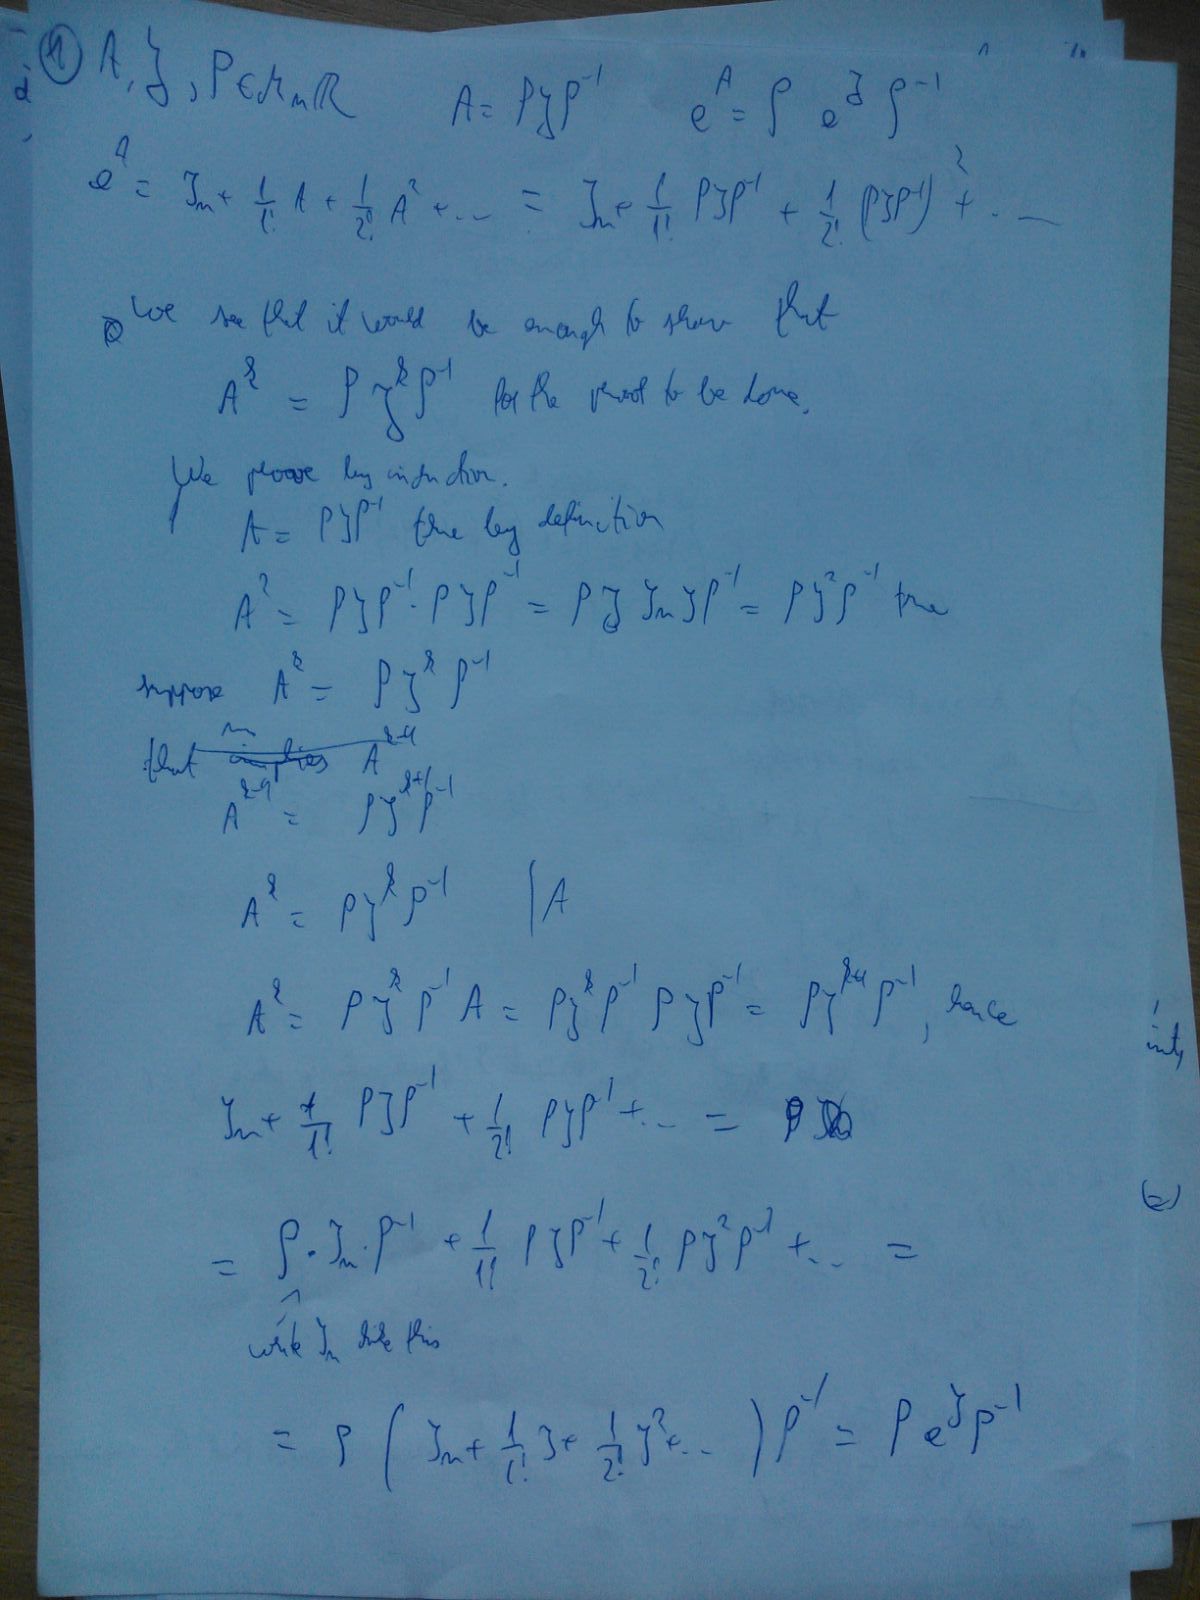 ① A, J, P ∈ M_n ℝ A = PJP⁻¹ e^A = P e^J P⁻¹
e^A = I_n + 1/1! A + 1/2! A² + ... = I_n + 1/1! PJP⁻¹ + 1/2! (PJP⁻¹)² + ...
We see that it would be enough to show that
A^k = P J^k P⁻¹ for the proof to be done.
We prove by induction.
A = PJP⁻¹ true by definition
A² = PJP⁻¹ · PJP⁻¹ = PJ I_n JP⁻¹ = PJ²P⁻¹ true
suppose A^k = P J^k P⁻¹
that implies A^k+1
A^k+1 = PJ^k+1 P⁻¹
A^k = PJ^k P⁻¹ | A
A^k = PJ^k P⁻¹ A = PJ^k P⁻¹ PJP⁻¹ = PJ^k+1 P⁻¹, hence
I_n + 1/1! PJP⁻¹ + 1/2! PJP⁻¹ + ... =
= P · I_n · P⁻¹ + 1/1! PJP⁻¹ + 1/2! PJ²P⁻¹ + ... =
write I_n like this
= P ( I_n + 1/1! J + 1/2! J² + ... ) P⁻¹ = P e^J P⁻¹